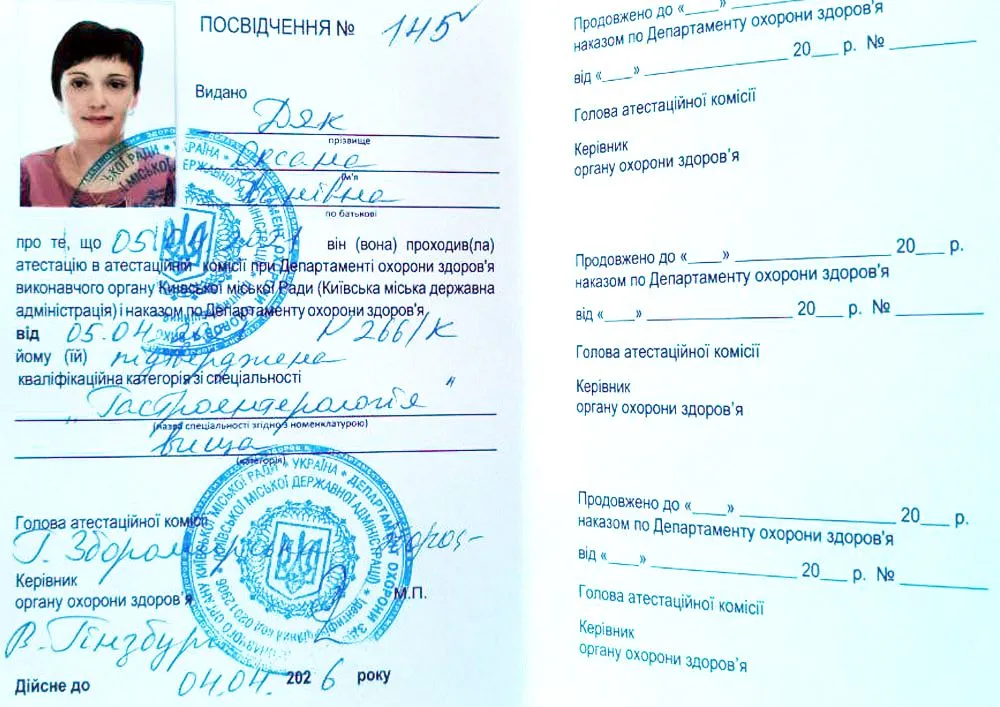 ПОСВІДЧЕННЯ № 145
Видано
Дяк
прізвище
Оксана
ім'я
по батькові
про те, що 05.04.2021 він (вона) проходив(ла)
атестацію в атестаційній комісії при Департаменті охорони здоров'я
виконавчого органу Київської міської Ради (Київська міська державна
адміністрація) і наказом по Департаменту охорони здоров'я
від 05.04. № 266/к
йому (їй) підтверджена
кваліфікаційна категорія зі спеціальності
„Гастроентерологія"
(назва спеціальності згідно з номенклатурою)
вища
(категорія)
Голова атестаційної комісії
Г.
Керівник
органу охорони здоров'я М.П.
В. Гінзбург
Дійсне до 04.04. 2026 року
Продовжено до «____» 20___ р.
наказом по Департаменту охорони здоров'я
від «____» ____________ 20___ р. № ____________
Голова атестаційної комісії
Керівник
органу охорони здоров'я
Продовжено до «____» ____________ 20___ р.
наказом по Департаменту охорони здоров'я
від «____» ____________ 20___ р. № ____________
Голова атестаційної комісії
Керівник
органу охорони здоров'я
Продовжено до «____» ____________ 20___ р.
наказом по Департаменту охорони здоров'я
від «____» ____________ 20___ р. № ____________
Голова атестаційної комісії
Керівник
органу охорони здоров'я